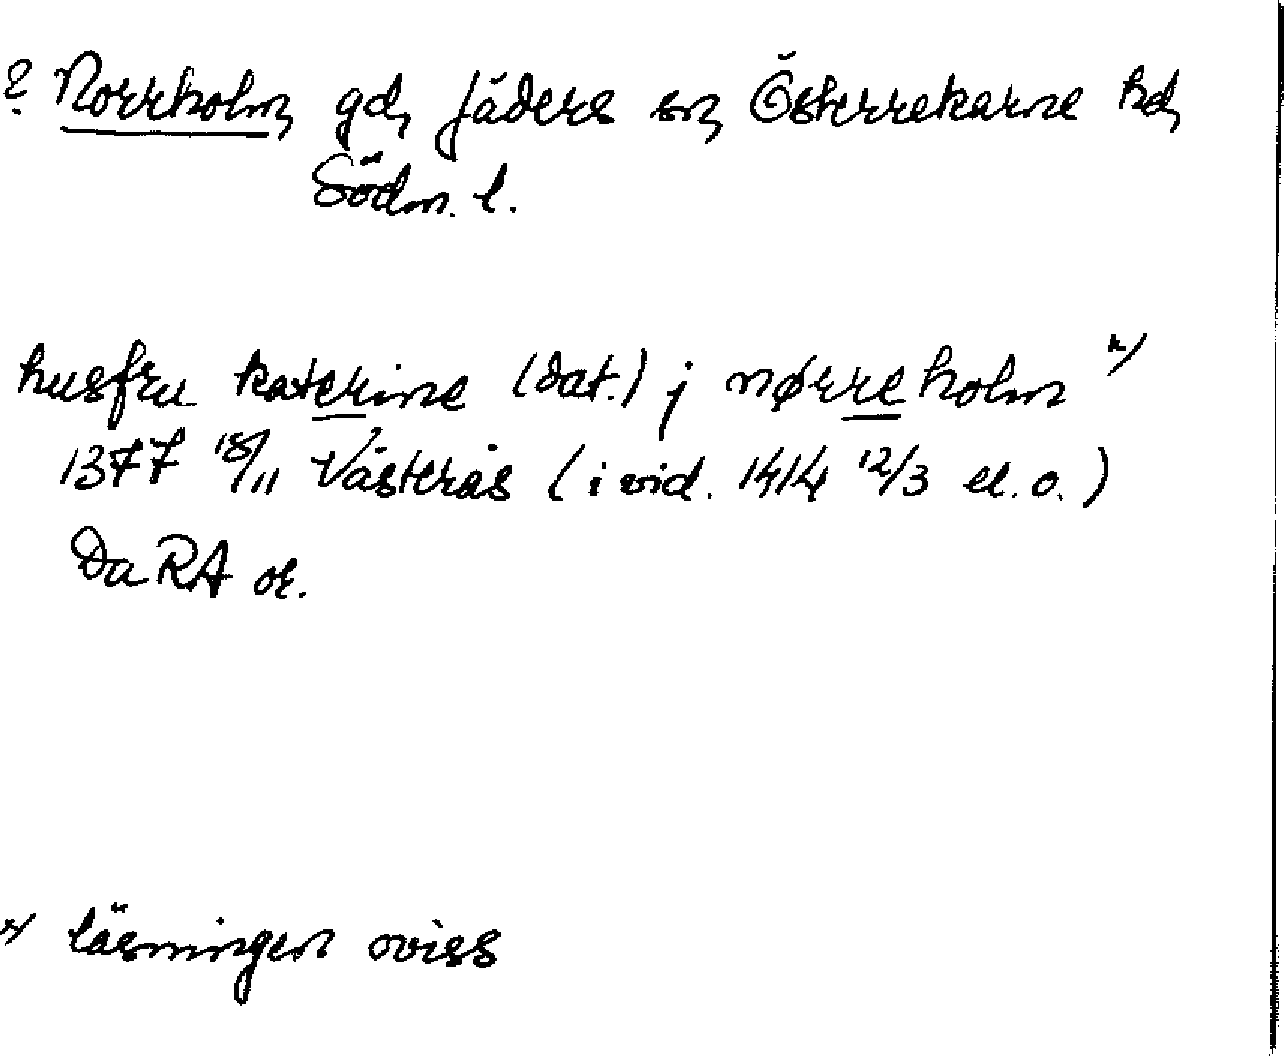 ? Norrholm gd Jäders sn Österrekarne hd
Södm. l.
husfru katerine (dat.) j nørreholm x)
1377 18/11 Västerås (i vid. 1414 12/3 el. o.)
Da RA or.
x) läsningen oviss